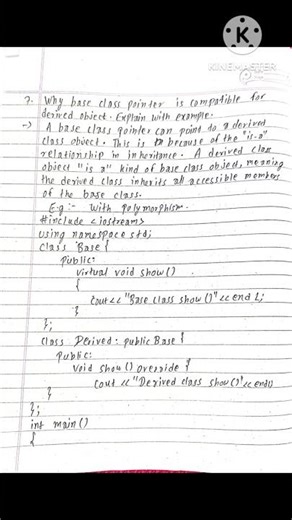 KINEMASTER
7. Why base class pointer is compatible for
derived object. Explain with example.
→ A base class pointer can point to a derived
class object. This is because of the "is-a"
relationship in inheritance. A derived class
object "is a" kind of base class object, meaning
the derived class inherits all accessible members
of the base class.
E.g :- With polymorphism.
#include <iostream>
using namespace std;
class Base {
public:
virtual void show()
{
cout<< "Base class show()"<< endl;
}
};
class Derived: public Base {
public:
void show() override {
cout << "Derived class show()"<< endl
}
};
int main()
{